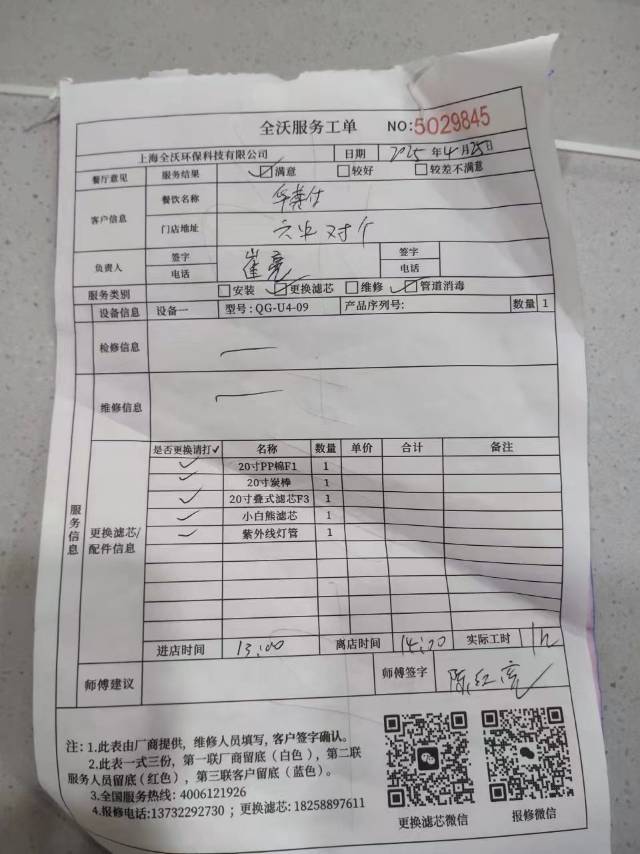 全沃服务工单 NO:5029845
上海全沃环保科技有限公司 日期 2025年4月25日
餐厅意见 服务结果 满意 较好 较差不满意
客户信息 餐饮名称
门店地址
负责人 签字 崔亮 签字
电话 电话
服务类别 安装 更换滤芯 维修 管道消毒
设备信息 设备一 型号:QG-U4-09 产品序列号: 数量 1
检修信息
维修信息
服务信息
更换滤芯/
配件信息
是否更换请打✓ 名称 数量 单价 合计 备注
✓ 20寸PP棉F1 1
✓ 20寸炭棒 1
✓ 20寸叠式滤芯F3 1
✓ 小白熊滤芯 1
✓ 紫外线灯管 1
进店时间 13:00 离店时间 14:20 实际工时 1h
师傅建议 师傅签字 陈红亮
注:1.此表由厂商提供,维修人员填写,客户签字确认。
2.此表一式三份,第一联厂商留底(白色),第二联
服务人员留底(红色),第三联客户留底(蓝色)。
3.全国服务热线:4006121926
4.报修电话:13732292730;更换滤芯:18258897611
更换滤芯微信 报修微信